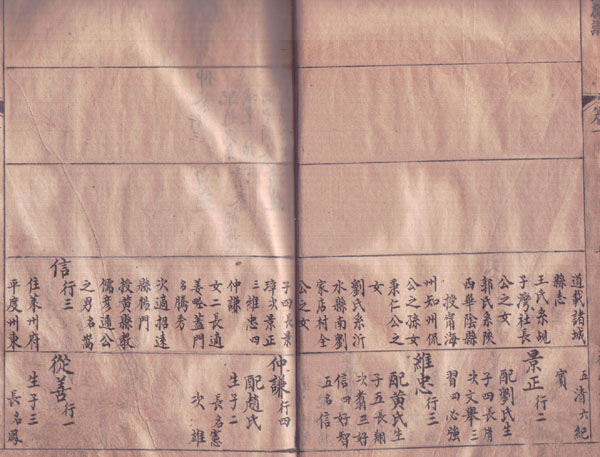 道載諸城
縣志
王氏系姚
子灣社長
公之女
郭氏系陝
西華陰縣
授甯海
州知州侃
公之孫女
秉仁公之
女
劉氏系沂
水縣南劉
家店村全
公之女
子四長景
璋次景正
三維忠四
仲謙
女二長適
姜 蓋門
名騰芳
次適招遠
縣楊門
授黃縣教
儒彥通公
之男名嵩
信 行三
住萊州府
平度州東
五清六紀
賓
景正 行二
配劉氏生
子四長清
次文舉三
習四必強
維忠 行三
配黃氏生
子五長翱
次翥三好
信四好智
五名信
仲謙 行四
配趙氏
生子二
長名憲
次雄
從善 行一
生子三
長名鳳